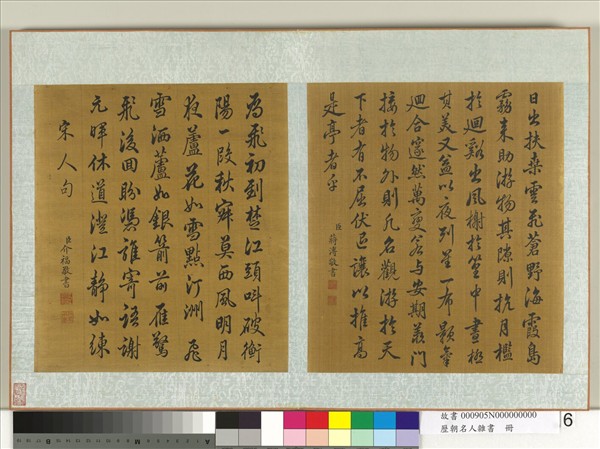 日出扶桑雲飛蒼野海霞島
霧來助游物其隙則抗月檻
於迴谿出風榭於篁中晝極
其美又益以夜列星下布顥氣
迴合邃然萬變若與安期羨門
接於物外則凡名觀游於天
下者有不屈伏退讓以推高
是亭者乎
臣蔣溥敬書
鴈飛初到楚江頭叫破衡
陽一段秋寂莫西風明月
夜蘆花如雪點汀洲 飛
雪洒蘆如銀箭前雁驚
飛後回盼憑誰寄語謝
元暉休道澄江靜如練
宋人句
臣介福敬書
故書 000905N000000000
歷朝名人雜書 冊
6